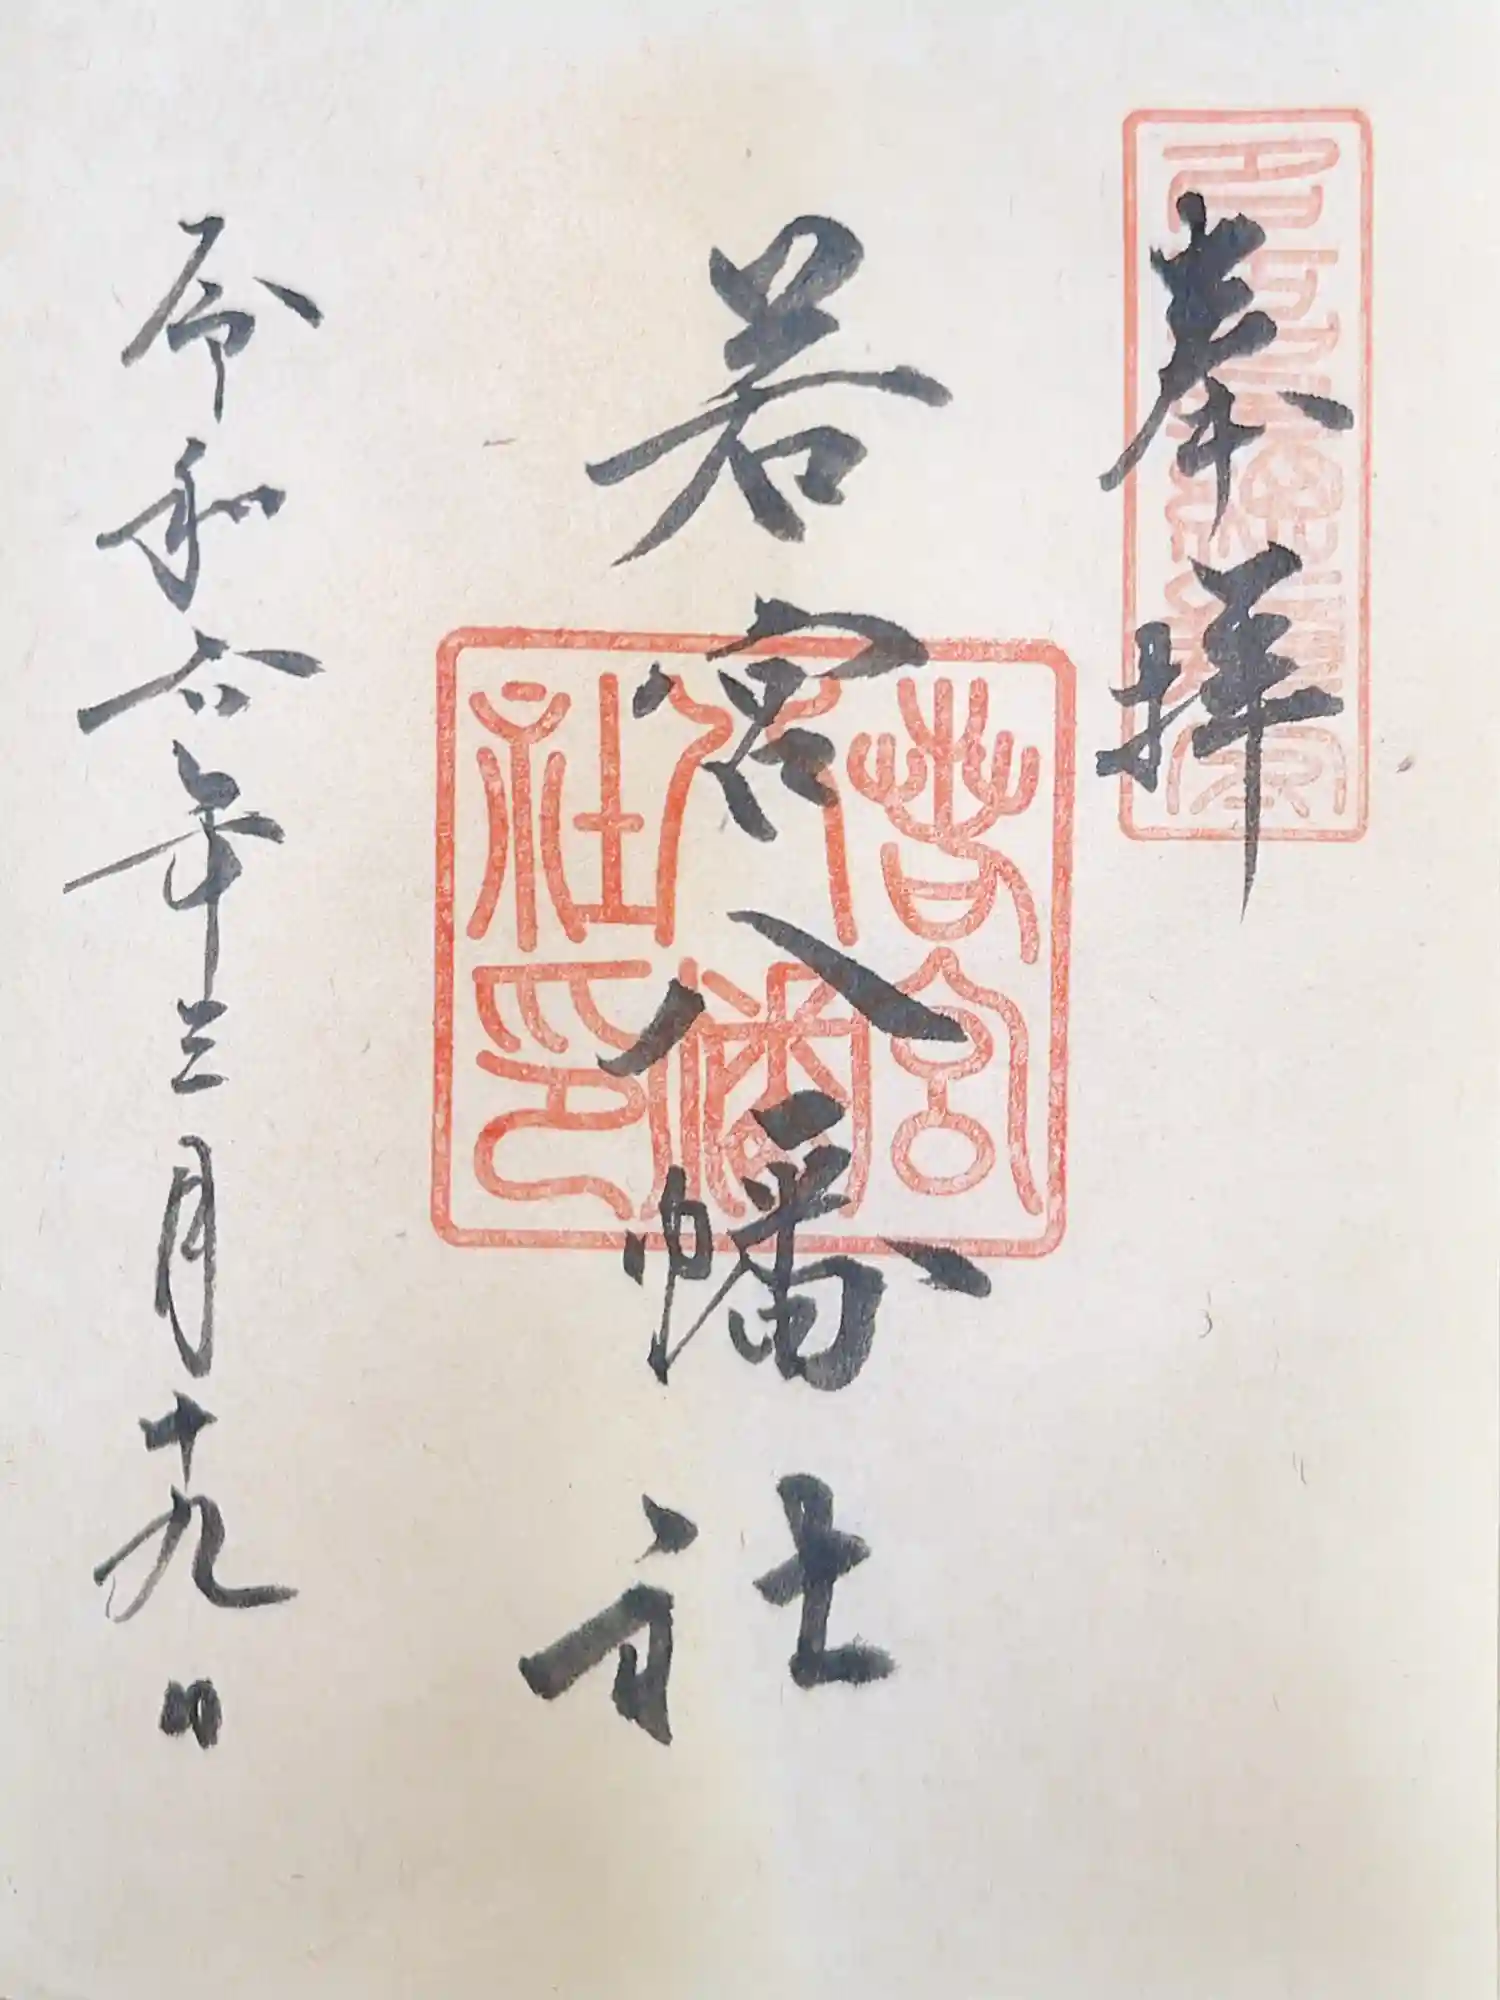 奉拝
若宮八幡社
若宮八幡社印
令和六年三月十九日